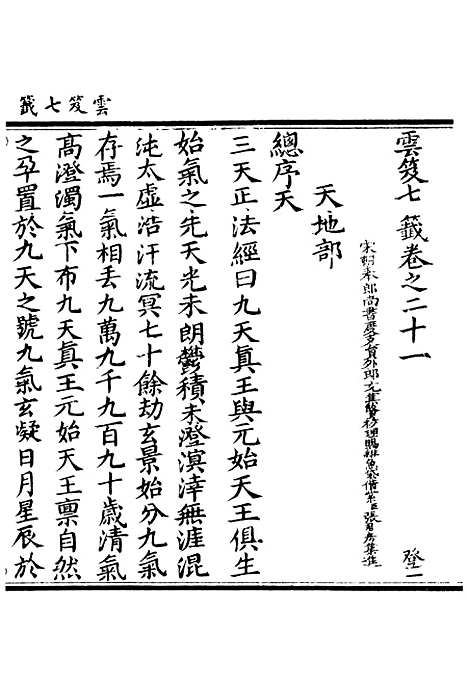 雲笈七籤
雲笈七籤卷之二十一
登一
宋朝奉郎尚書度支員外郎充集賢校理賜緋魚袋借紫臣張君房集進
天地部
總序天
三天正法經曰九天眞王與元始天王俱生
始氣之先天光未朗鬱積未澄溟涬無涯混
沌太虛浩汗流冥七十餘劫玄景始分九氣
存焉一氣相去九萬九千九百九十歲清氣
高澄濁氣下布九天眞王元始天王禀自然
之孕置於九天之號九氣玄凝日月星辰於